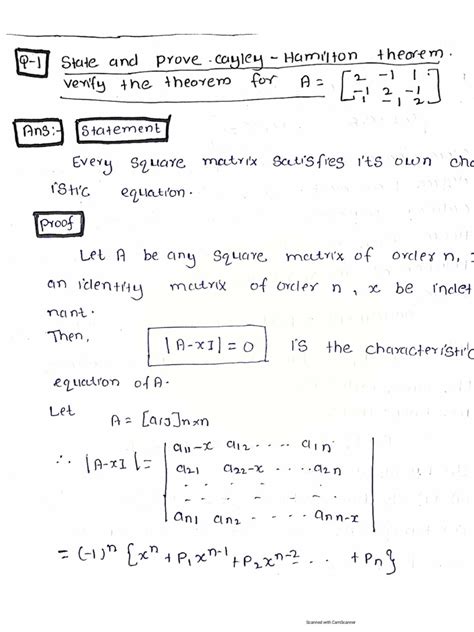 Q-1 State and prove cayley-Hamilton theorem.
verify the theorem for A = [2 -1 1
-1 2 -1
1 -1 2]
Ans:- Statement
Every square matrix satisfies its own cha
istic equation.
Proof
Let A be any square matrix of order n,
an identity matrix of order n, x be indet
nant.
Then, |A-xI| = 0 is the characteristic
equation of A.
Let
A = [aij]n×n
∴ |A-xI| = | a11-x a12 .... a1n |
a21 a22-x ....a2n
- - - - - -
an1 an2 - - - - ann-x
= (-1)^n {x^n + P1x^n-1 + P2x^n-2 ... + Pn}
Scanned with CamScanner